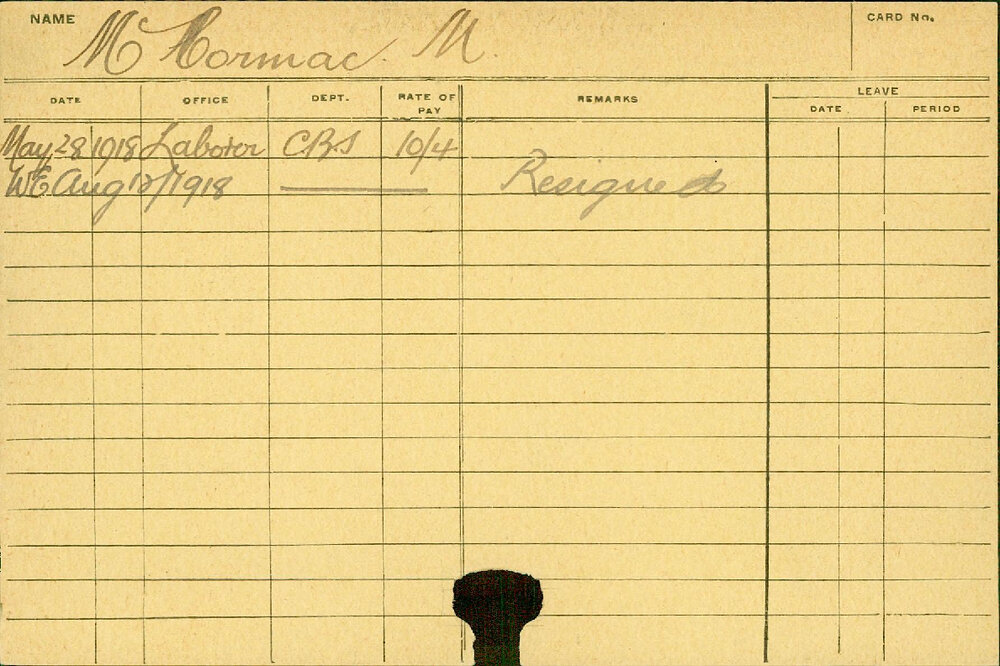 NAME McCormac. M. CARD No.
DATE OFFICE DEPT. RATE OF PAY REMARKS LEAVE
DATE PERIOD
May 28 1918 Laborer CBS 10/4
WE Aug 17/1918 Resigned